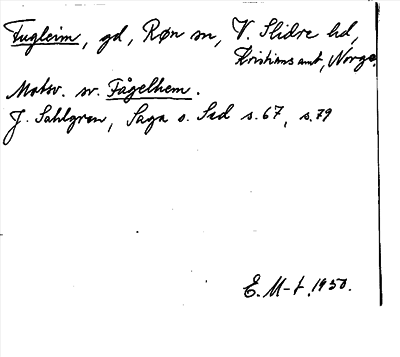 Fugleim, gd, Røn sn, V. Slidre hd,
Kristians amt, Norge.
Motsv. sv. Fågelhem.
J. Sahlgren, Saga o. Sed s. 67, s. 79
E. M-t. 1950.